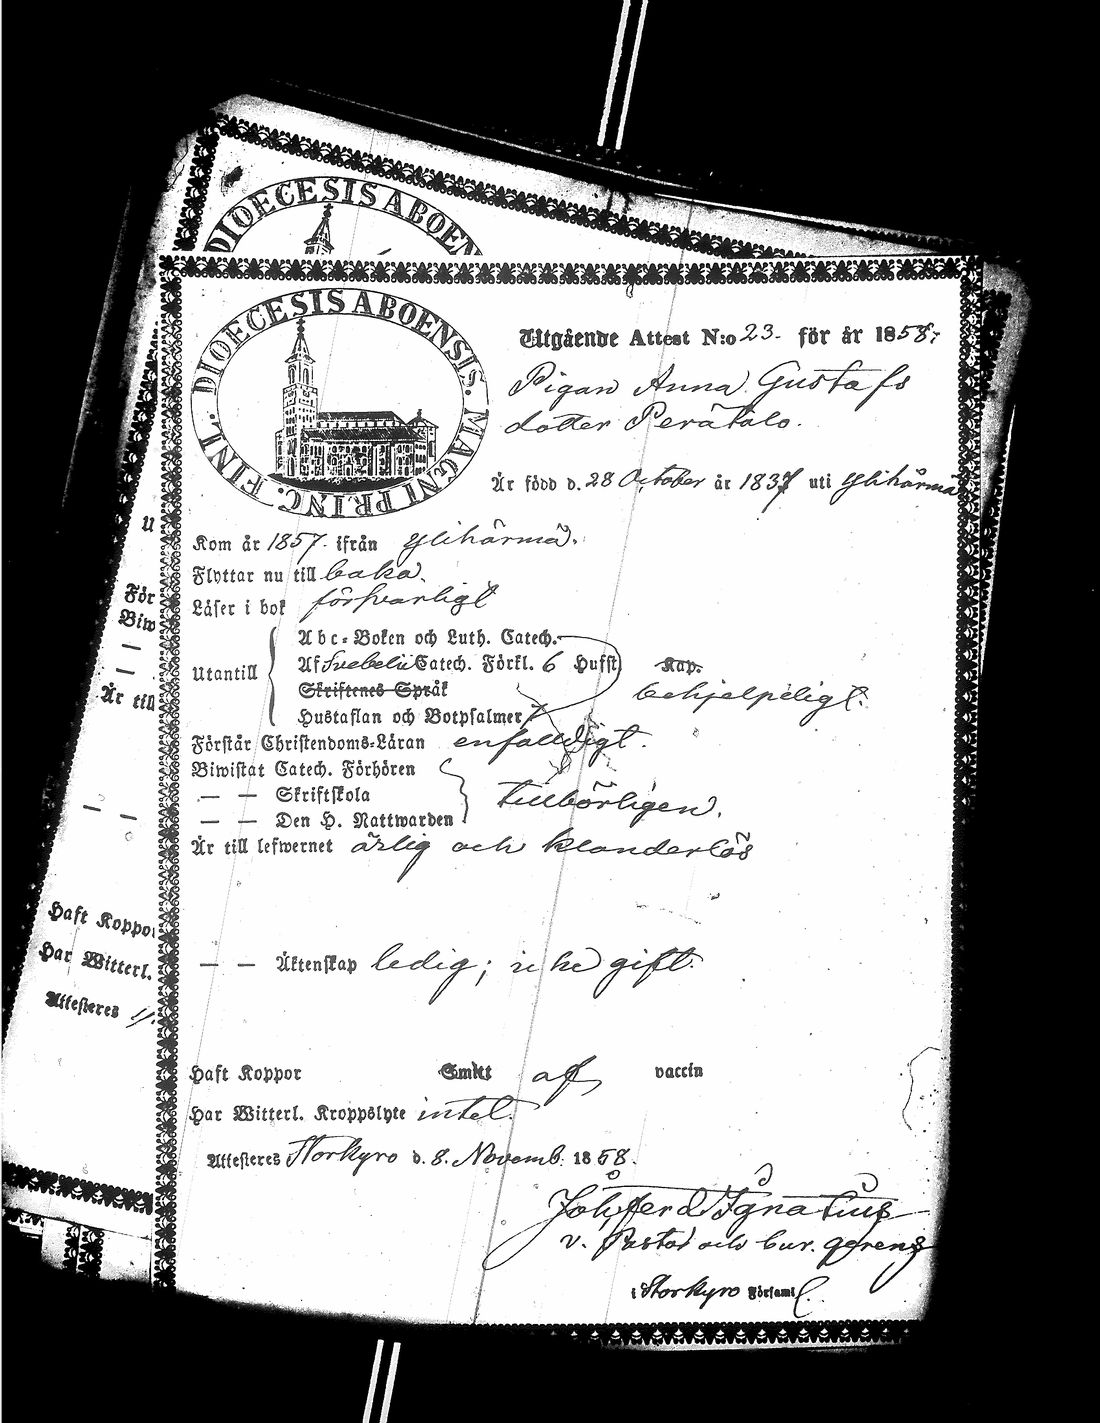 DIOECESIS ABOEN
DIOECESIS ABOENSIS. MAGNI PRINC. FINL.
Utgående Attest N:o 23. för år 1858,
Pigan Anna Gustafs
dotter Perätalo.
Är född d. 28 October år 1837 uti Ylihärmä
Kom år 1857. ifrån Ylihärmä.
Flyttar nu till baka.
Läser i bok försvarligt
Utantill
Abc-Boken och Luth. Catech.
Af Svebelii Catech. Förkl. 6 Hufst Kap.
Skriftenes Språk
behjelpeligt.
Hustaflan och Botpsalmer
Förstår Christendoms-Läran enfaldigt.
Biwistat Catech. Förhören
— — Skriftskola
tillbörligen.
— — Den H. Nattwarden
Är till lefwernet ärlig och klanderlös
— — Äktenskap ledig; icke gift.
Haft Koppor Smitt af vaccin
Har Witterl. Kroppslyte intet.
Attesteres Storkyro d. 8. Novemb. 1858.
Joh. Ferd. Ignatius
v. Pastor och cur. gerens
i Storkyro Församl.
U
För
Biw
—
—
Är till
— —
Haft Koppor
Har Witterl.
Attesteres